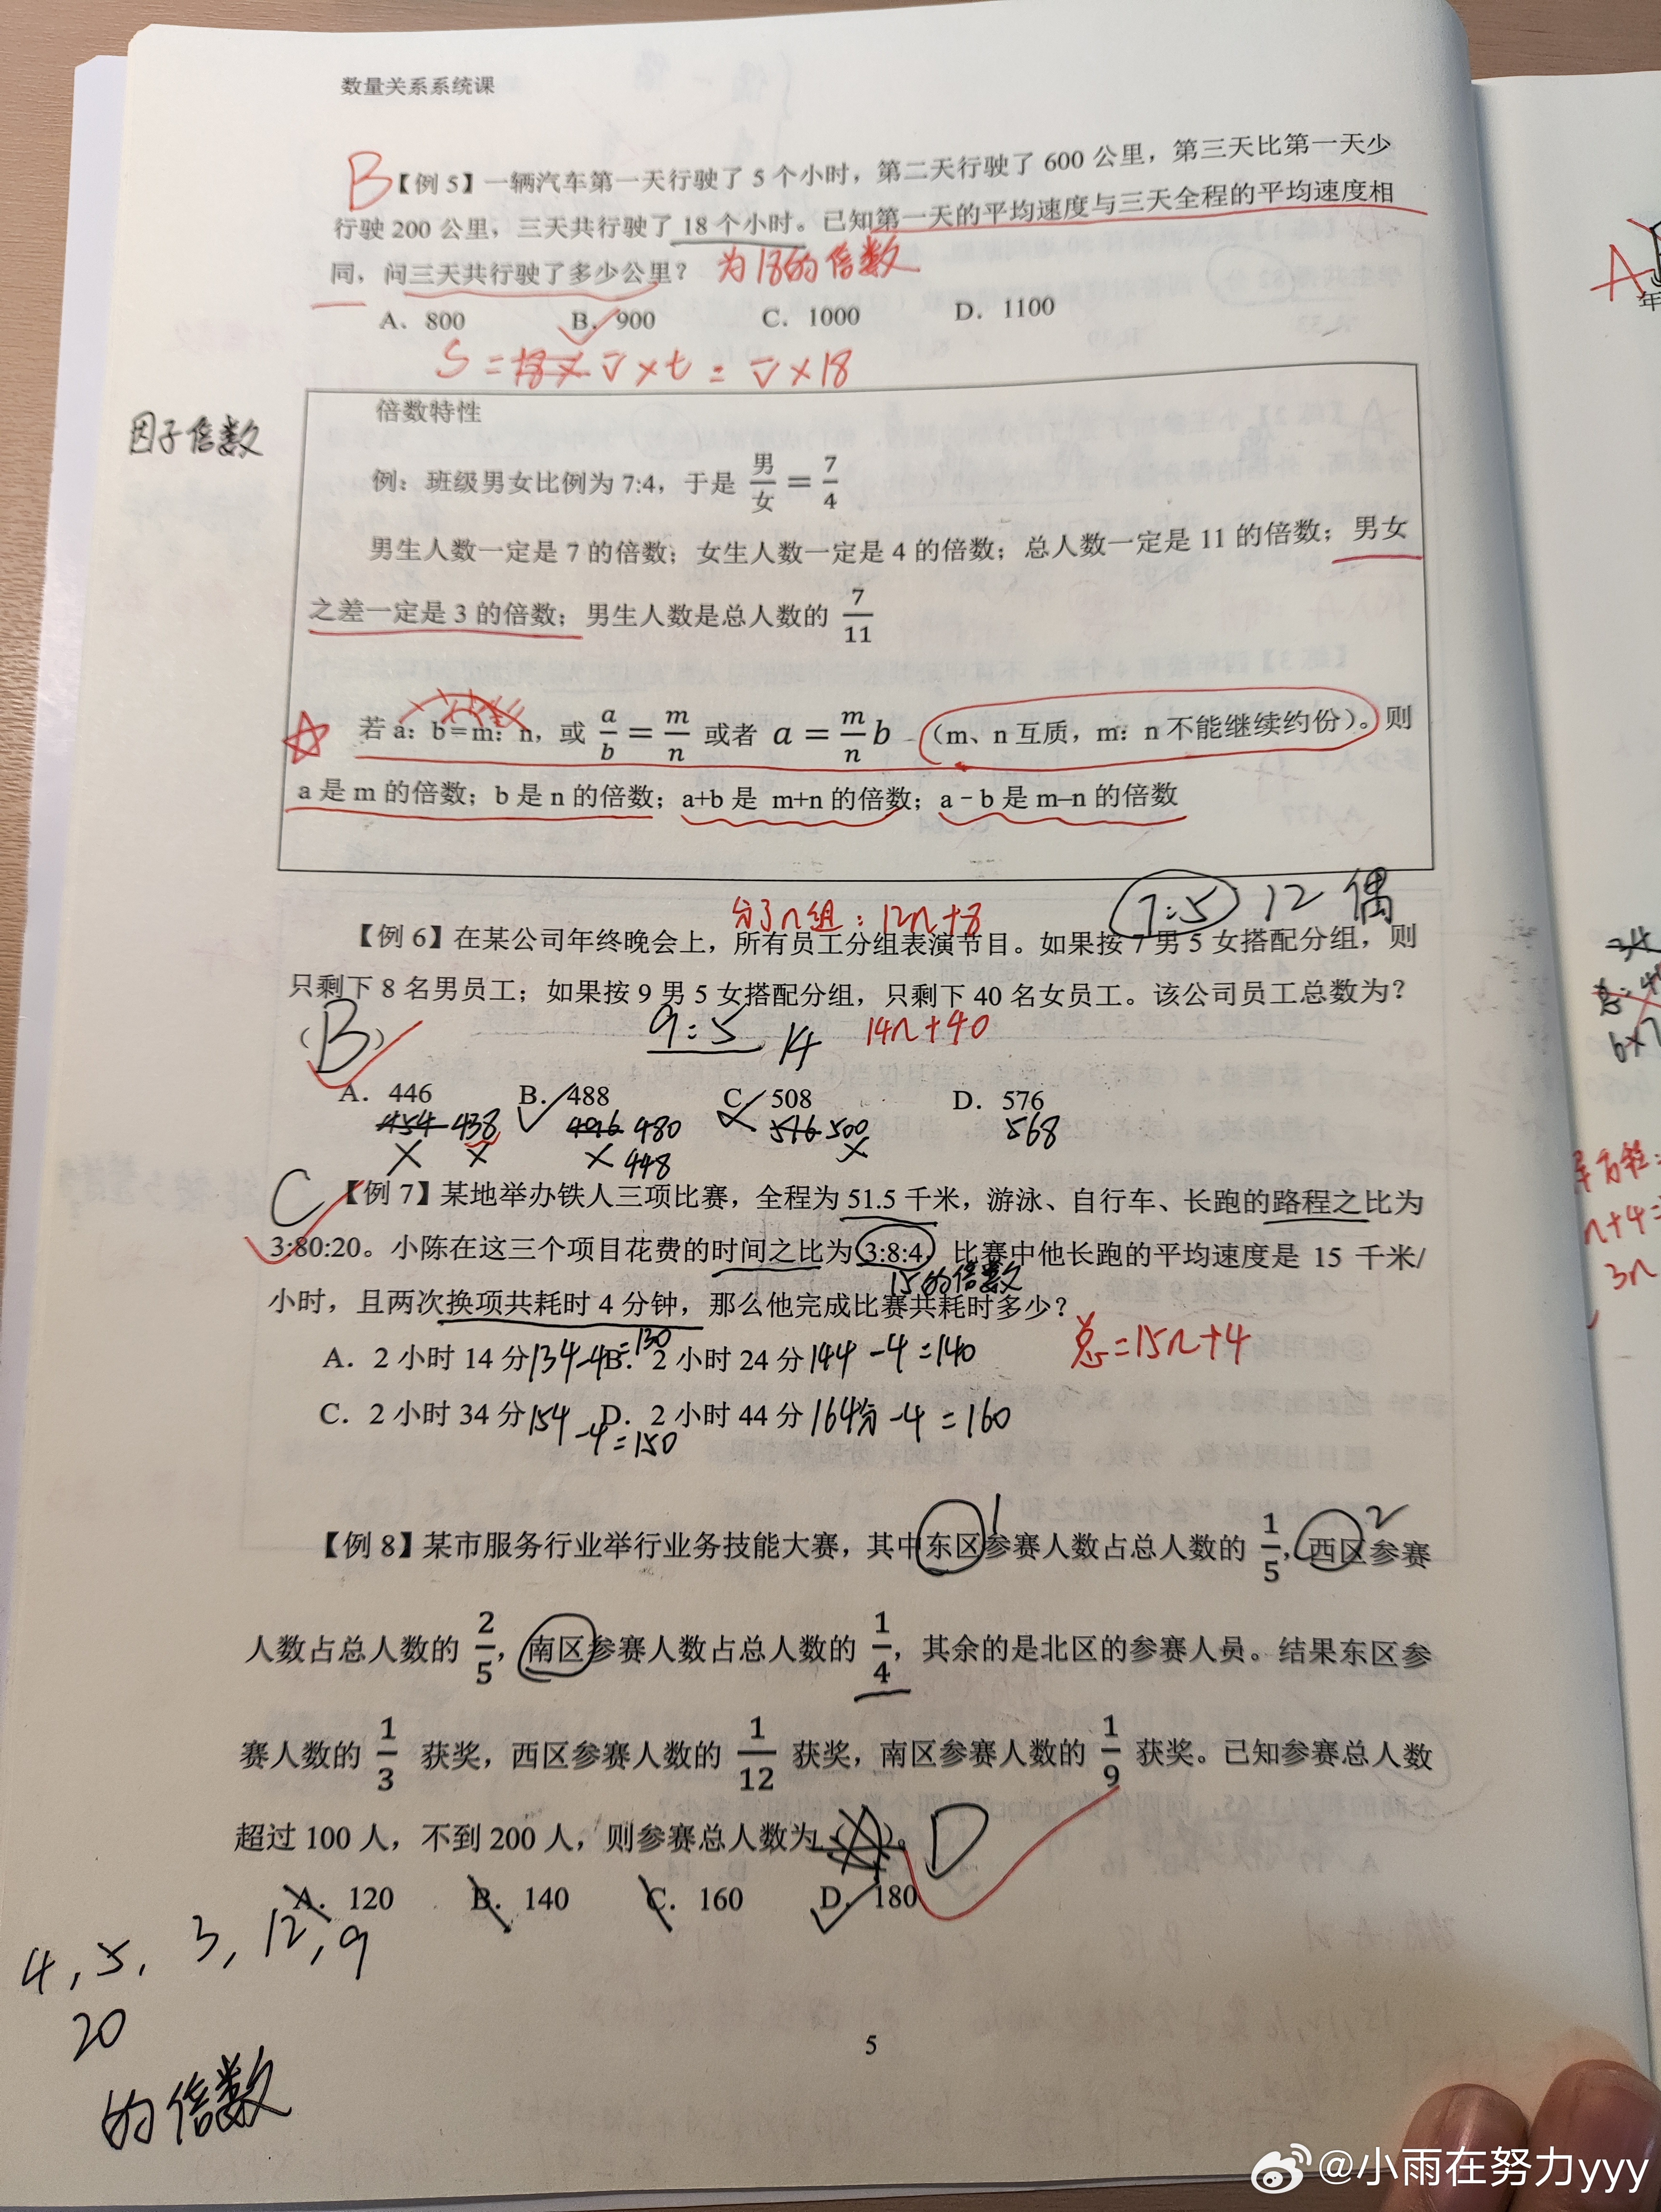 数量关系系统课
B【例 5】一辆汽车第一天行驶了 5 个小时，第二天行驶了 600 公里，第三天比第一天少
行驶 200 公里，三天共行驶了 18 个小时。已知第一天的平均速度与三天全程的平均速度相
同，问三天共行驶了多少公里？ 为18的倍数
A. 800 B. 900 C. 1000 D. 1100
S = v̄ × t = v̄ × 18
倍数特性
因子倍数
例：班级男女比例为 7:4，于是 男/女 = 7/4
男生人数一定是 7 的倍数；女生人数一定是 4 的倍数；总人数一定是 11 的倍数；男女
之差一定是 3 的倍数；男生人数是总人数的 7/11
若 a：b=m：n，或 a/b = m/n 或者 a = m/n b （m、n 互质，m：n 不能继续约份）。则
a 是 m 的倍数；b 是 n 的倍数；a+b 是 m+n 的倍数；a－b 是 m–n 的倍数
分了n组：12n+8 7:5 12 偶
【例 6】在某公司年终晚会上，所有员工分组表演节目。如果按 7 男 5 女搭配分组，则
只剩下 8 名男员工；如果按 9 男 5 女搭配分组，只剩下 40 名女员工。该公司员工总数为？
（B） 9:5 14 14n+40
A. 446 B. 488 C. 508 D. 576
454 438 496 480 516 500 568
448
C【例 7】某地举办铁人三项比赛，全程为 51.5 千米，游泳、自行车、长跑的路程之比为
3:80:20。小陈在这三个项目花费的时间之比为 3:8:4，比赛中他长跑的平均速度是 15 千米/
15的倍数
小时，且两次换项共耗时 4 分钟，那么他完成比赛共耗时多少？
总=15n+4
A. 2 小时 14 分 134-4=130 B. 2 小时 24 分 144-4=140
C. 2 小时 34 分 154-4=150 D. 2 小时 44 分 164分-4=160
1 2
【例 8】某市服务行业举行业务技能大赛，其中东区参赛人数占总人数的 1/5，西区参赛
人数占总人数的 2/5，南区参赛人数占总人数的 1/4，其余的是北区的参赛人员。结果东区参
赛人数的 1/3 获奖，西区参赛人数的 1/12 获奖，南区参赛人数的 1/9 获奖。已知参赛总人数
超过 100 人，不到 200 人，则参赛总人数为（ ）。D
A. 120 B. 140 C. 160 D. 180
4, 5, 3, 12, 9
20
的倍数
5
A
年
n+4=
3n
@小雨在努力yyy